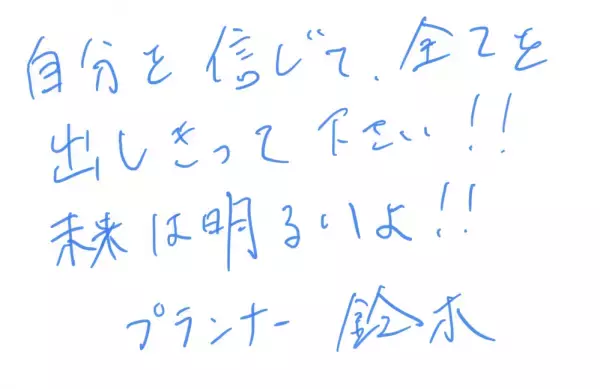 自分を信じて、全てを
出しきって下さい!!
未来は明るいよ!!
プランナー 鈴木